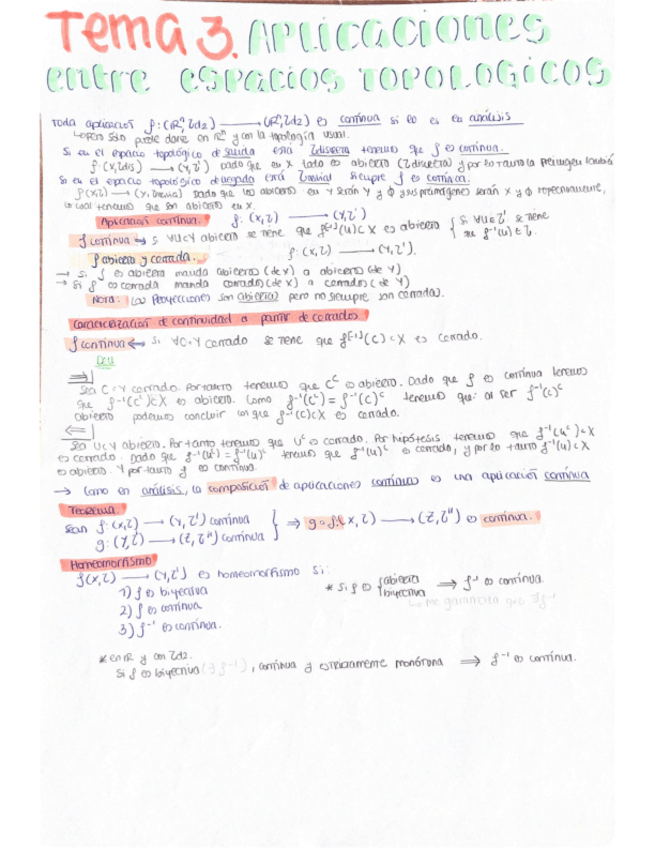 Tema 3. Aplicaciones
entre espacios topologicos
Toda aplicación f: (ℝⁿ, τd2) → (ℝᵐ, τd2) es continua si lo es en análisis
↳ pero solo puede darse en ℝⁿ y con la topología usual.
Si en el espacio topológico de salida está τdiscreta tenemos que f es continua.
f: (X, τdis) → (Y, τ') dado que en X todo es abierto (τ discreta) y por lo tanto la preimagen también
Si en el espacio topológico de llegada está τtrivial siempre f es continua.
f(X, τ) → (Y, τtrivial) dado que los abiertos en Y serán Y y ∅ y sus preimágenes serán X y ∅ respectivamente,
lo cual tenemos que son abiertos en X.
Aplicación continua. f: (X, τ) → (Y, τ')
f continua ↔ si ∀U⊂Y abierto se tiene que f[-1](U)⊂X es abierto { Si ∀U∈τ' se tiene
que f⁻¹(U)∈τ.
f abierta y cerrada. f: (X, τ) → (Y, τ').
→ Si f es abierta manda abiertos (de X) a abiertos (de Y)
→ Si f es cerrada manda cerrados (de X) a cerrados (de Y)
Nota: Las proyecciones son abiertas pero no siempre son cerradas.
Caracterización de continuidad a partir de cerrados
f continua ↔ si ∀C⊂Y cerrado se tiene que f[-1](C)⊂X es cerrado.
⇒
Sea C⊂Y cerrado. Por tanto tenemos que Cᶜ es abierto. Dado que f es continua tenemos
que f⁻¹(Cᶜ)⊂X es abierto. Como f⁻¹(Cᶜ) = f⁻¹(C)ᶜ tenemos que: al ser f⁻¹(C)ᶜ
abierto podemos concluir con que f⁻¹(C)⊂X es cerrado.
⇐
Sea U⊂Y abierto. Por tanto tenemos que Uᶜ es cerrado. Por hipótesis tenemos que f⁻¹(Uᶜ)⊂X
es cerrado. Dado que f⁻¹(Uᶜ) = f⁻¹(U)ᶜ tenemos que f⁻¹(U)ᶜ es cerrado, y por lo tanto f⁻¹(U)⊂X
es abierto. Y por tanto f es continua.
→ Como en análisis, la composición de aplicaciones continuas es una aplicación continua
Teorema.
Sean f: (X, τ) → (Y, τ') continua
g: (Y, τ') → (Z, τ'') continua } ⇒ g∘f: (X, τ) → (Z, τ'') es continua.
Homeomorfismo
f(X, τ) → (Y, τ') es homeomorfismo si:
1) f es biyectiva
2) f es continua
3) f⁻¹ es continua.
* Si f es { abierta
biyectiva ⇒ f⁻¹ es continua.
↳ me garantiza que ∃f⁻¹
* en ℝ y con τd2.
Si f es biyectiva (∃ f⁻¹), continua y estrictamente monótona ⇒ f⁻¹ es continua.